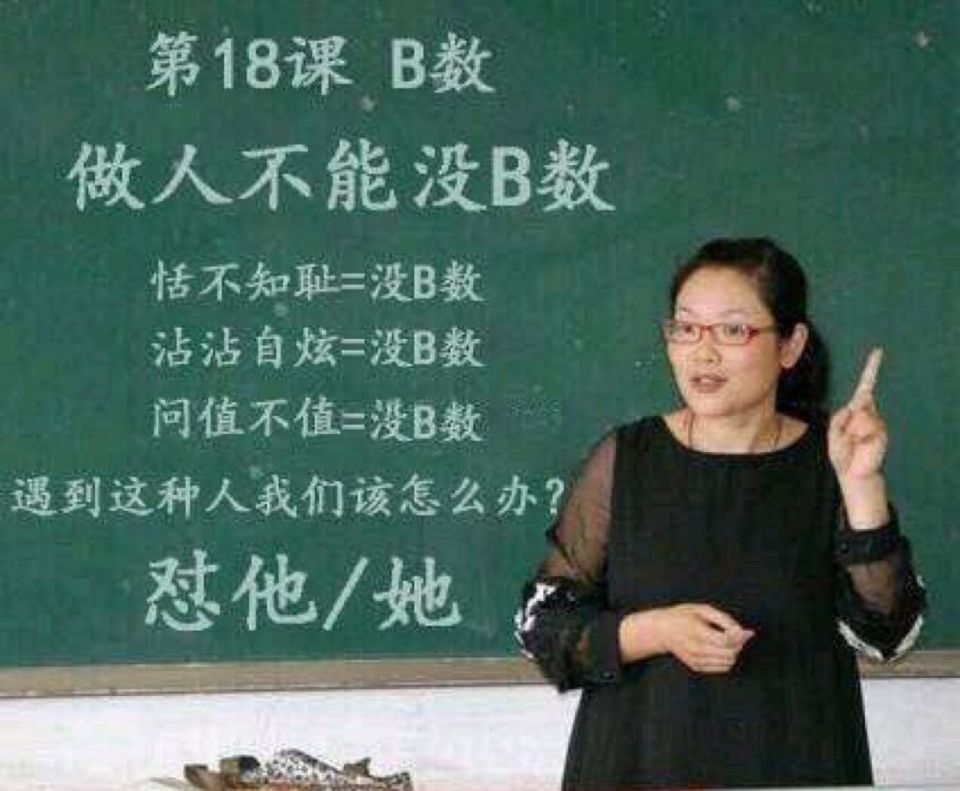 第18课 B数
做人不能没B数
恬不知耻=没B数
沾沾自炫=没B数
问值不值=没B数
遇到这种人我们该怎么办?
怼他/她